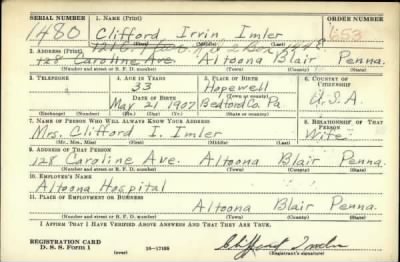 SERIAL NUMBER 1. NAME (Print) ORDER NUMBER
1480 Clifford Irvin Imler
(First) (Middle) (Last)
2. ADDRESS (Print)
128 Caroline Ave. Altoona Blair Penna.
(Number and street or R. F. D. number) (Town) (County) (State)
3. TELEPHONE 4. AGE IN YEARS 5. PLACE OF BIRTH 6. COUNTRY OF CITIZENSHIP
33 Hopewell
DATE OF BIRTH
May 21 1907 Bedford Co. Pa. U.S.A.
(Exchange) (Number) (Mo.) (Day) (Yr.) (State or country)
7. NAME OF PERSON WHO WILL ALWAYS KNOW YOUR ADDRESS 8. RELATIONSHIP OF THAT PERSON
Mrs. Clifford I. Imler Wife
(Mr., Mrs., Miss) (First) (Middle) (Last)
9. ADDRESS OF THAT PERSON
128 Caroline Ave. Altoona Blair Penna.
(Number and street or R. F. D. number) (Town) (County) (State)
10. EMPLOYER'S NAME
Altoona Hospital
11. PLACE OF EMPLOYMENT OR BUSINESS
Altoona Blair Penna.
(Number and street or R. F. D. number) (Town) (County) (State)
I AFFIRM THAT I HAVE VERIFIED ABOVE ANSWERS AND THAT THEY ARE TRUE.
REGISTRATION CARD
D. S. S. Form 1 (over) 16-17105 Clifford Imler
(Registrant's signature)